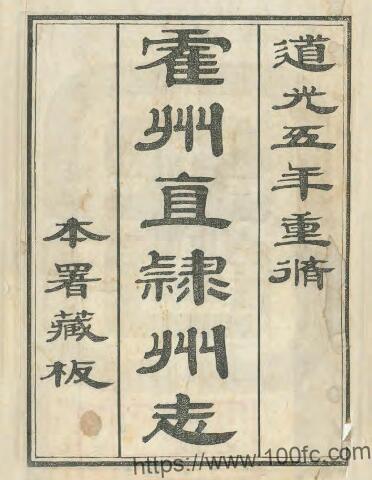 道光五年重脩
霍州直隸州志
本署藏板
https://www.100fc.com